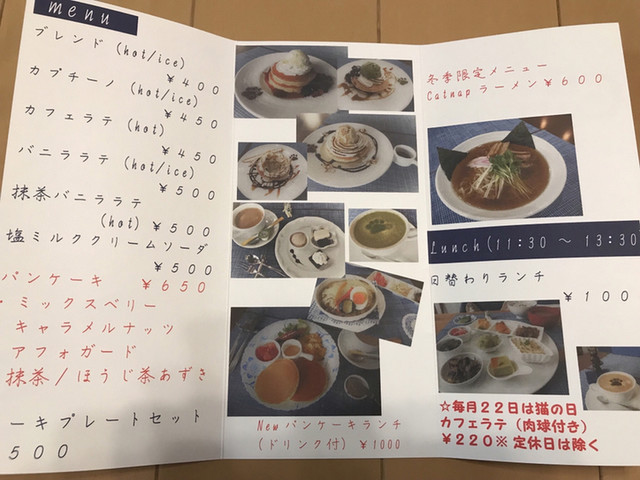 menu
ブレンド (hot/ice)
¥400
カプチーノ (hot/ice)
¥450
カフェラテ (hot)
¥450
バニララテ (hot/ice)
¥500
抹茶バニララテ
(hot) ¥500
塩ミルククリームソーダ
¥500
パンケーキ ¥650
・ミックスベリー
キャラメルナッツ
アフォガード
抹茶/ほうじ茶あずき
ーキプレートセット
500
Newパンケーキランチ
(ドリンク付) ¥1000
冬季限定メニュー
Catnapラーメン¥600
Lunch(11:30 ～ 13:30)
日替わりランチ
¥100
☆毎月22日は猫の日
カフェラテ(肉球付き)
¥220※定休日は除く